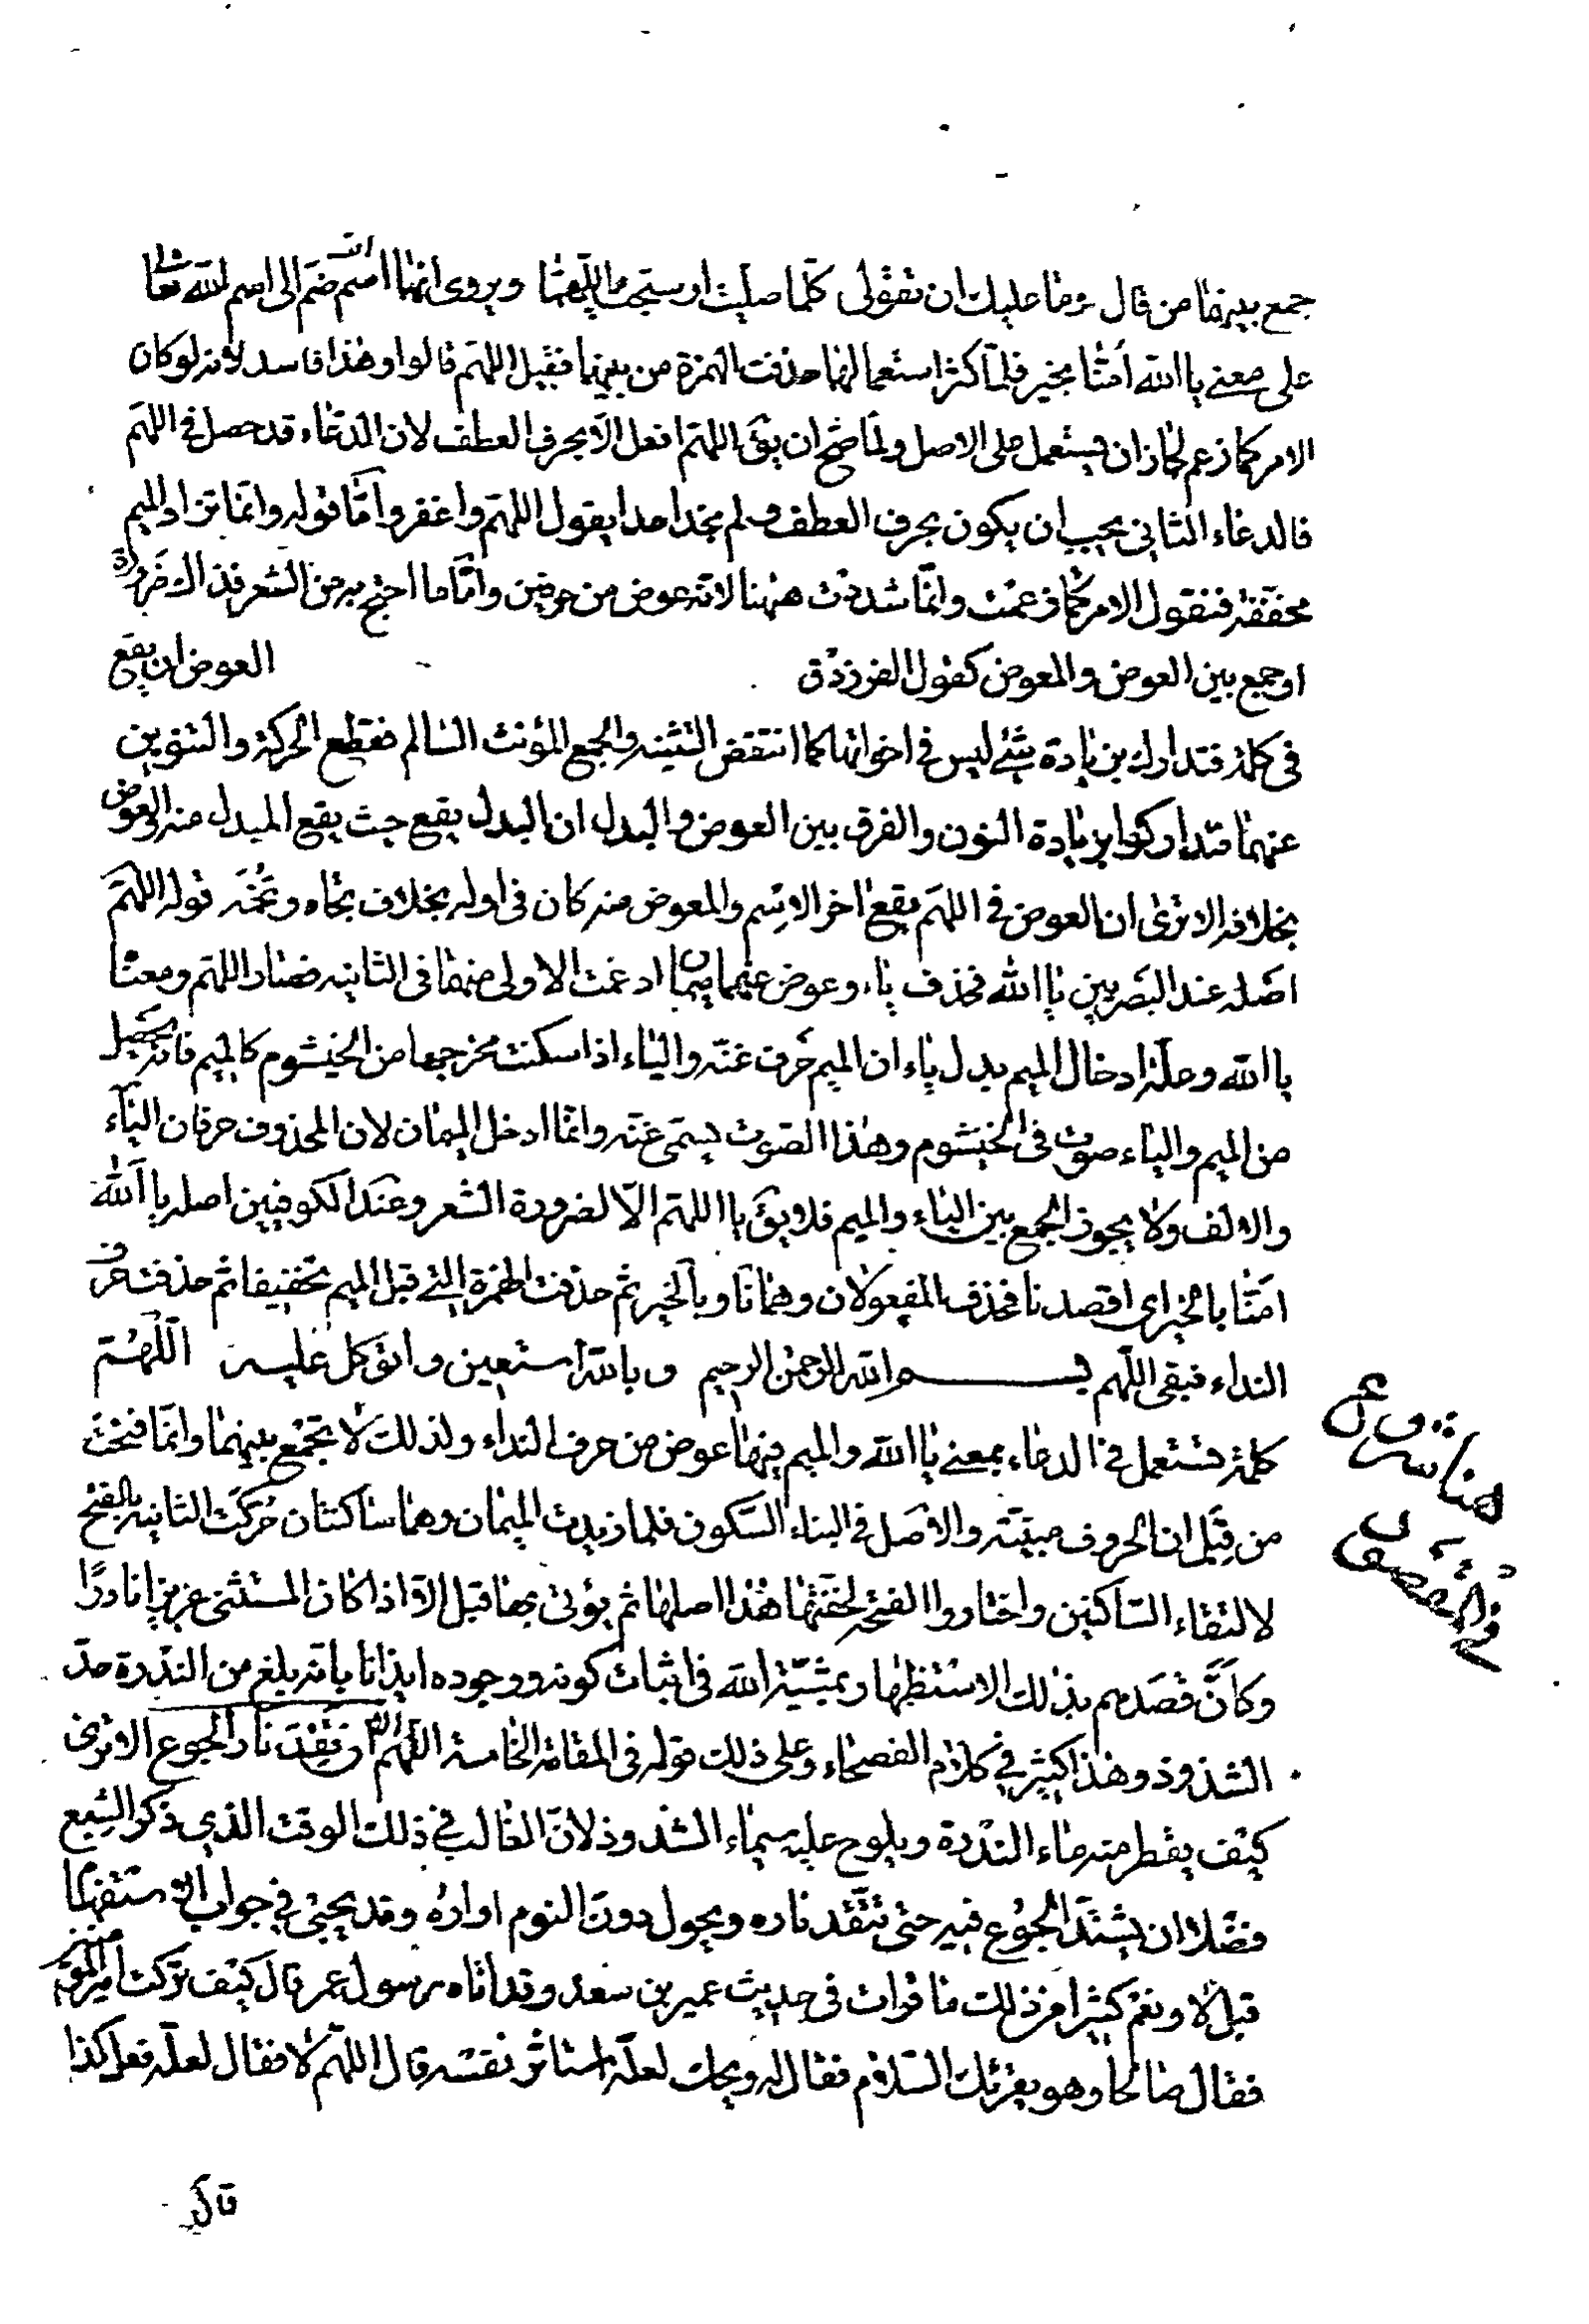 جمع بينهما من قال وما عليك ان تقولى كلما صليت او سبحت يا اللهما ويروى انها اسم ضم الى اسم الله تعا
على معنى يا الله امنا بخير فلما كثر استعمالها حذفت الهمزة من بينهما فقيل اللهم قالوا وهذا فاسد لانه لو كان
الامر كما زعم لجاز ان يستعمل على الاصل ولما صح ان يق اللهم افعل الا بحرف العطف لان الدعاء قد حصل فى اللهم
فالدعاء الثانى يجب ان يكون بحرف العطف ولم نجد احدا يقول اللهم واغفر واما قوله وانما تزاد الميم
مخففة فنقول الامر كما زعمت وانما شددت ههنا لانه عوض من حرفين واما ما احتج به من الشعر فذاك ضرورة
او جمع بين العوض والمعوض كقول الفرزدق العوض ان يقع
فى كلمة فتدارك بزيادة شئ ليس فى اخواتها كما انتقض التثنيه والجمع المؤنث السالم فقطع الحركة والتنوين
عنهما فتداركوا بزيادة النون والفرق بين العوض والبدل ان البدل يقع حيث يقع المبدل منه والعوض
بخلافه الا ترى ان العوض فى اللهم يقع اخر الاسم والمعوض منه كان فى اوله بخلاف تجاه وتخمه قوله اللهم
اصله عند البصريين يا الله فحذف ياء وعوض عنهما ميمان ادغمت الاولى منهما فى الثانيه فصار اللهم ومعنا
يا الله وعلة ادخال الميم بدل ياء ان الميم حرف غنه والياء اذا سكنت مخرجها من الخيشوم كالميم فانه يحصل
من الميم والياء صوت فى الخيشوم وهذا الصوت يسمى غنه وانما ادخل الميمان لان المحذوف حرفان الياء
والالف ولا يجوز الجمع بين الياء والميم فلا يق يا اللهم الا لضرورة الشعر وعند الكوفيين اصله يا الله
امنا بالخير اى اقصدنا فحذف المفعولان وهما نا وبالخير ثم حذفت الهمزة التى قبل الميم تخفيفا ثم حذفت حرف
النداء فبقى اللهم بسم الله الرحمن الرحيم وبالله استعين واتوكل عليه اللهم
كلمة تستعمل فى الدعاء بمعنى يا الله والميم فيها عوض من حرف النداء ولذلك لا تجتمع بينهما وانما فتحت
من قبل ان الحروف مبنيه والاصل فى البناء السكون فلما زيدت الميمان وهما ساكنتان حركت الثانيه بالفتح
لالتقاء الساكنين واختاروا الفتحه لخفتها هذا اصلها ثم يؤتى بها قبل الا اذا كان المستثنى عزيزا نادرا
وكان قصدهم بذلك الاستظهار بمشية الله فى اثبات كونه ووجوده ايذانا بانه بلغ من الندرة حد
الشذوذ وهذا كثير فى كلام الفصحاء وعلى ذلك قوله فى المقامة الخامسة اللهم الا ان تقد نار الجوع الا ترى
كيف يقطر منه ماء الندرة ويلوح عليه سيماء الشذوذ لان الغالب فى ذلك الوقت الذى ذكر الشبع
فضلا ان يشتد الجوع فيه حتى تتقد ناره ويحول دون النوم اواره وقد يجئ فى جواب الاستفهام
قبل لا ونعم كثيرا من ذلك ما قرات فى حديث عمير بن سعد وقد اتاه رسول عمر قال كيف تركت امير المؤمنين
فقال صالحا وهو يقرئك السلام فقال له ويحك لعله استاثر نفسه قال اللهم لا فقال لعله فعل كذا
هنا شروع
فى المقصود
قال